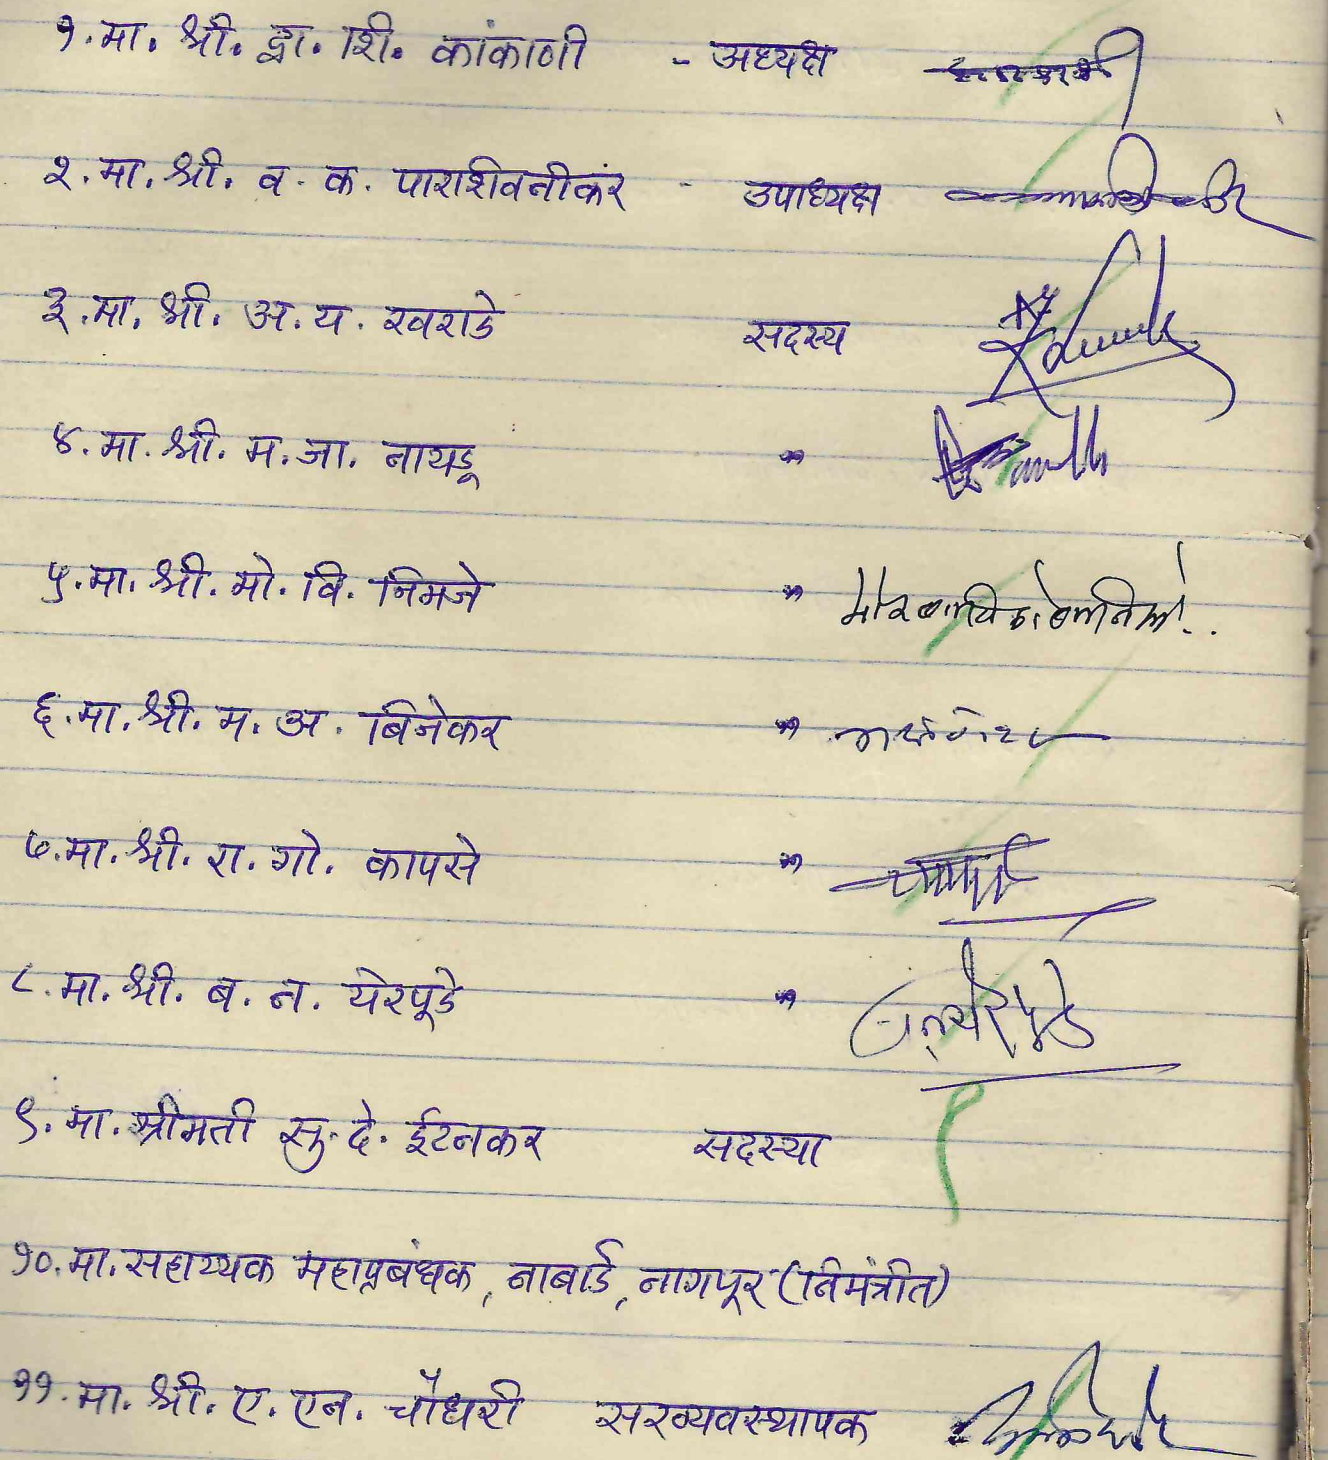 १. मा. श्री. द्वा. शि. कांकाणी - अध्यक्ष
२. मा. श्री. व. क. पाराशिवनीकर - उपाध्यक्ष
३. मा. श्री. अ. य. खवराडे सदस्य
४. मा. श्री. म. जा. नायडू "
५. मा. श्री. मो. वि. निमजे "
६. मा. श्री. म. अ. बिजेकर "
७. मा. श्री. रा. गो. कापसे "
८. मा. श्री. ब. न. येरपूडे "
९. मा. श्रीमती सु. दे. ईटनकर सदस्या
१०. मा. सहाय्यक महाप्रबंधक, नाबार्ड, नागपूर (निमंत्रीत)
११. मा. श्री. ए. एन. चौधरी सरव्यवस्थापक